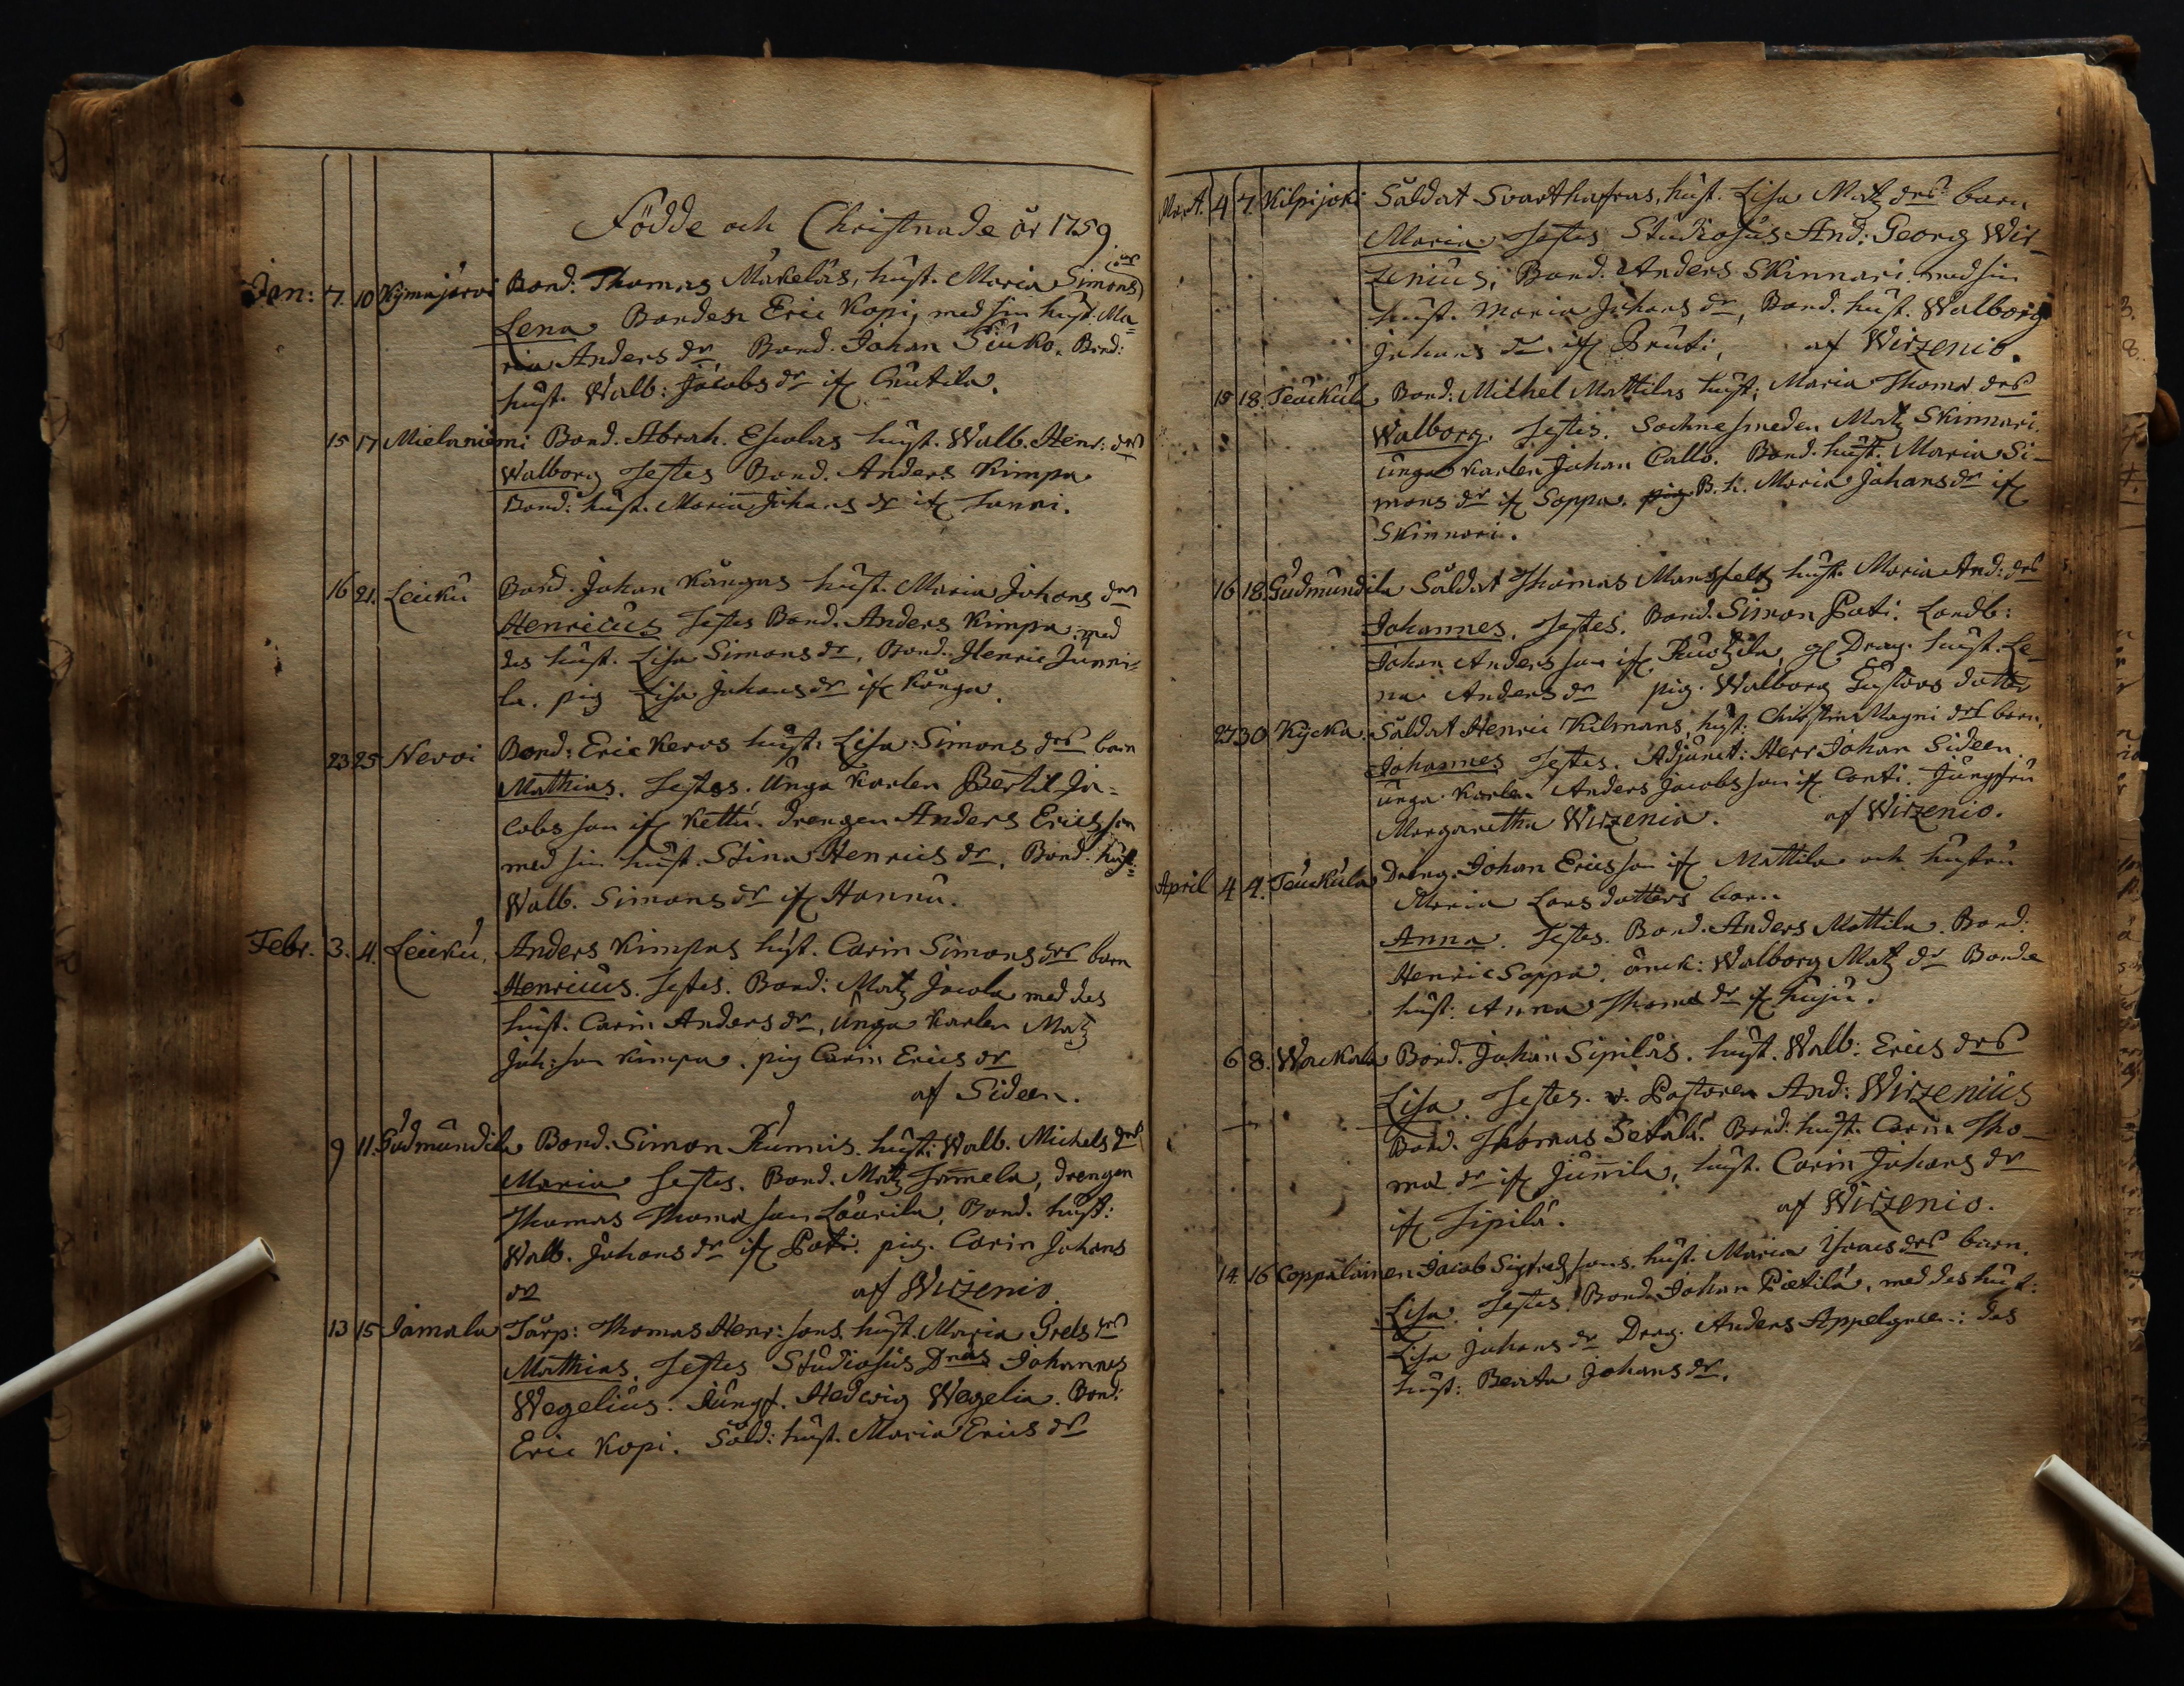 Födde och Christnade år 1759.
Jan: 7. 10 Kijmajärvi Bond. Thomas Mäkeläs, hust. Maria Simons drs
Lena Bonden Eric Kopi, med sin hust. Ma=
ria Anders dr, Bond. Johan Siuko. Bond:
hust. Walb: Jacobs dr if Cnutila.
15 17 Mielaniemi Bond. Abrah. Escolas hust. Walb. Henr: drs
Walborg Testes Bond. Anders Kimpa
Bond: hust. Maria Johans dr if
16 21. Leiku Bond. Johan Kångas hust. Maria Johans drs
Henricus Testes Bond. Anders Kimpa med
des hust. Lisa Simons dr, Bond. Henric Junni=
la. pig Lisa Johans dr if Kånga.
23 25 Nervoi Bond: Eric Keros hust: Lisa Simons drs barn
Mathias. Testes. Unga Karlen Bertil Ja=
cobs son if Kettu. drengen Anders Erics son
med sin hust. Stina Henrics dr. Bond. hust=
Walb. Simons dr if Hannu.
Febr. 3. 4. Leiku, Anders Kimpas hust. Carin Simons drs barn
Henricus. Testes. Bond: Matz Jacola med des
hust. Carin Anders dr, Unga Karlen Matz
Joh: son Kimpa. pig Carin Erics dr
af Sideen.
9 11. Gudmundila Bond. Simon Rumis. hust: Walb. Michels drs
Maria Testes. Bond. Matz drengen
Thomas Thomæ son Laurila, Bond. hust:
Walb. Johans dr if Pati. pig. Carin Johans
dr af Wirzenio.
13 15 Jamala Tårp: Thomas Henr: sons hust. Maria Grels drs
Mathias. Testes Studiosus Dnus Johannes
Wegelius. Jungf. Hedwig Wegelia. Bond:
Eric Kopi. Sold: hust. Maria Erics dr
Mart. 4 7. Kilpijoki Såldat Svarthafras, hust. Lisa Matz drs barn
Maria Testes Studiosus And: Georg Wir-
zenius, Bond. Anders Skinnari med sin
hust. Maria Johans dr, Bond. hust. Walborg
Johans dr if Pruti, af Wirzenio.
15 18. Teuckula Bond: Michel Mattilas hust: Maria Thomæ drs
Walborg. Testes. Sochnesmeden Matz Skinnari.
unga Karlen Johan Callo. Bond. hust. Maria Si-
mons dr if Soppa. pig B. h. Maria Johans dr if
Skinnari.
16 18. Gudmundila Såldat Thomas Mansfelts hust. Maria And: drs
Johannes. Testes. Bond. Simon Pati. Landb:
Johan Anders son if Drag. hust. Le-
na Anders dr pig. Walborg Gustavs dotter
27 30 Kijcka. Såldat Henric Kilmans, hust: Christina Magni drs barn.
Johannes Testes. Adjunct: Herr Johan Sideen.
unga Karlen Anders Jacobs son if Conti. Jungfru
Margaretha Wirzenia. af Wirzenio.
April 4 4. Teuckula Dreng. Johan Erics son if Mattila och hustru
Maria Lars dotters barn
Anna. Testes. Bond. Anders Mattila. Bond:
Henric Soppa. änck: Walborg Matz dr Bonde
hust: Anna Thomæ dr if Huju.
6 8. Wackala Bond. Johan Sipiläs. hust. Walb: Erics drs
Lisa. Testes. v. Pastoren And: Wirzenius
Bond. Thomas Setälä. Bond: hust. Carin Tho-
mæ dr if Junnila, hust. Carin Johans dr
if Sipilä. af Wirzenio.
14. 16 Coppalainen Jacob Sigfreds sons, hust. Maria Isracs drs barn.
Lisa. Testes Bond Johan Pietilä, med des hust:
Lisa Johans dr Drag. Anders Appelgren: des
hust: Beata Johans dr.